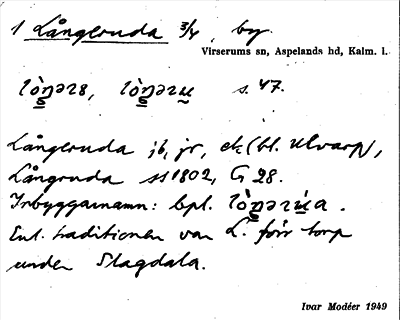 1 Långeruda 3/4, by.
Virserums sn, Aspelands hd, Kalm. l.
lòŋərs, lòŋəru s. 47.
Långeruda jb, jr, ek (bl. Ulvarp),
Långruda ss 1802, G 28.
Inbyggarnamn: bpl. lòŋərúa.
Enl. traditionen var L. förr torp
under Slagdala.
Ivar Modéer 1949